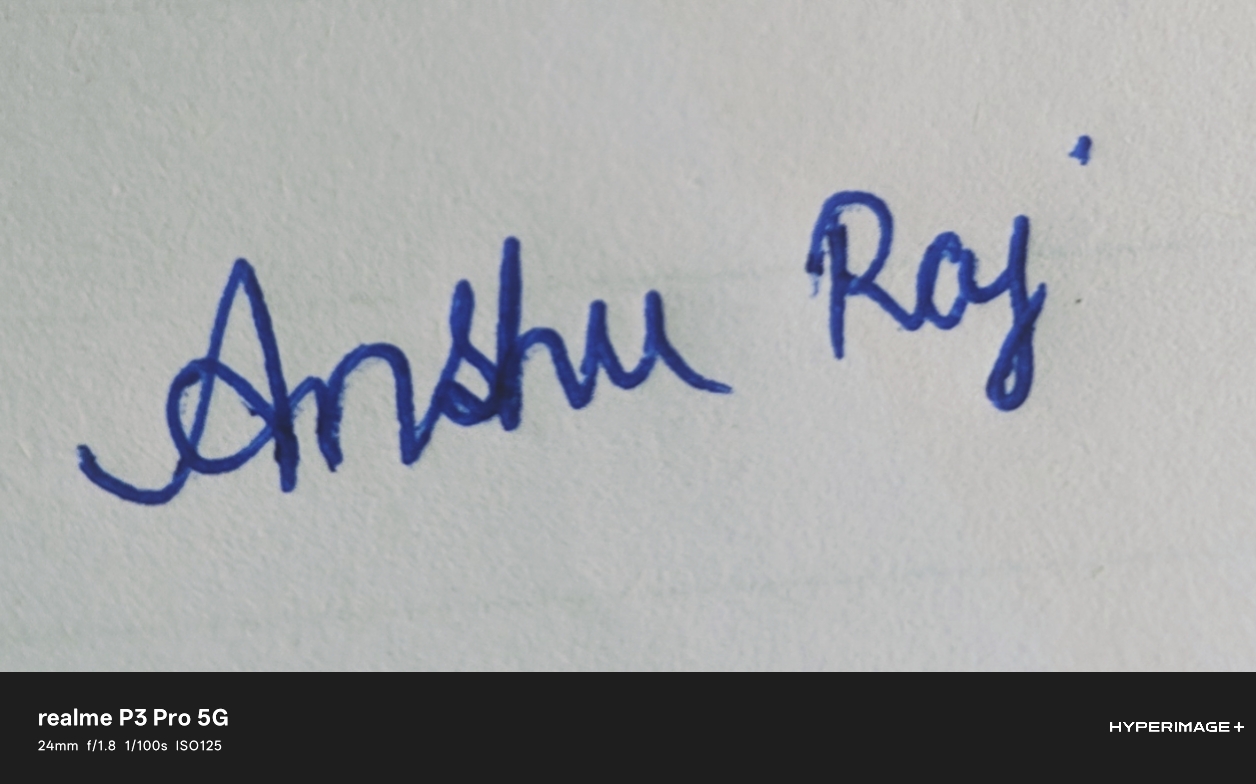 Anshu Raj
realme P3 Pro 5G
24mm f/1.8 1/100s ISO125
HYPERIMAGE+